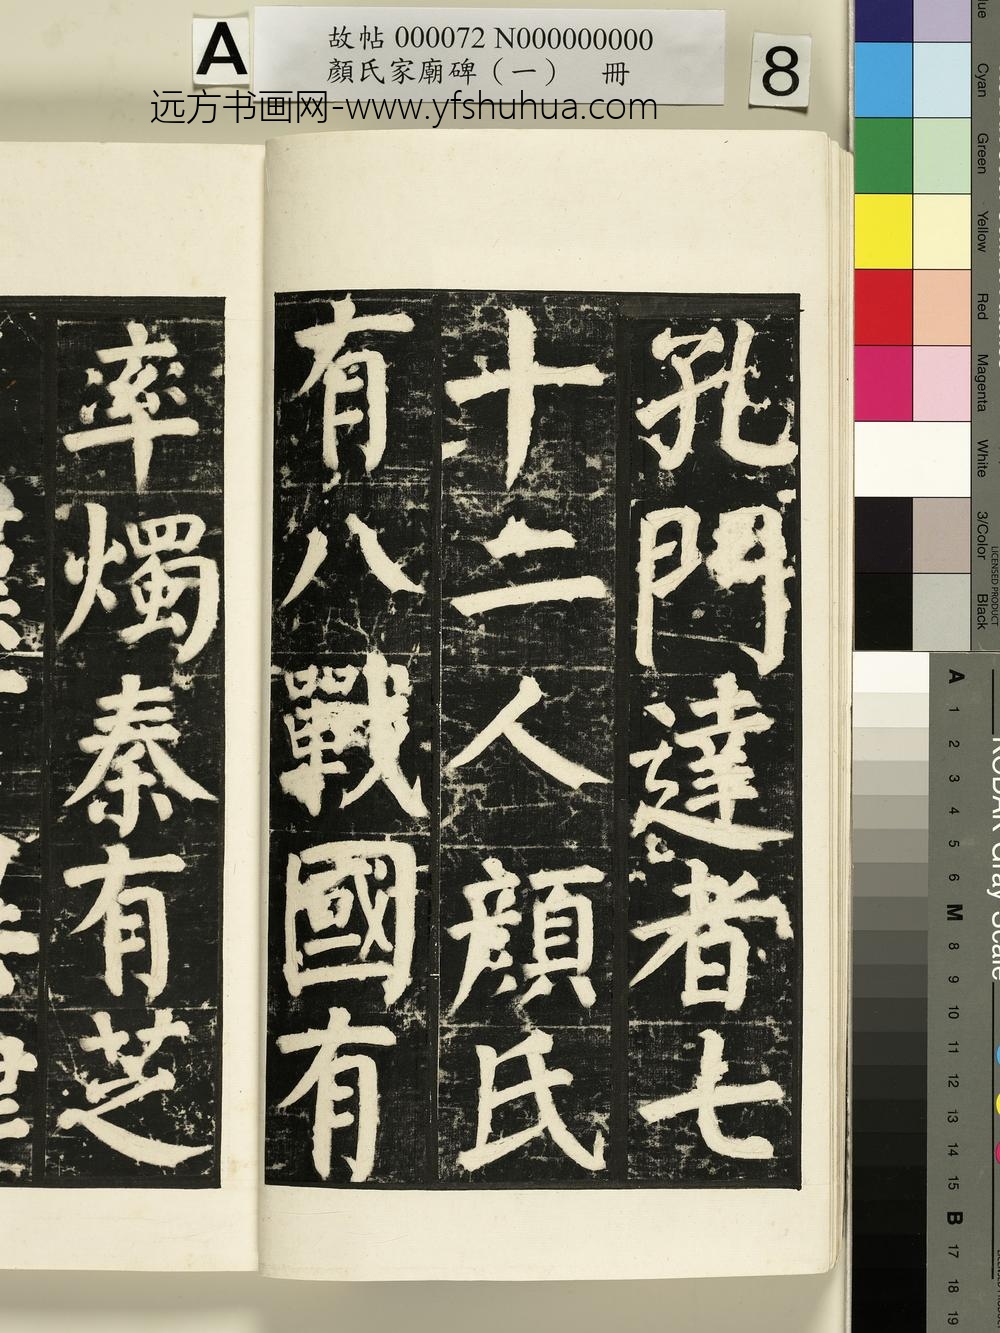 A
故帖 000072 N000000000
顏氏家廟碑（一） 冊
8
远方书画网-www.yfshuhua.com
孔門達者七
十二人顏氏
有八戰國有
率燭秦有芝
Cyan
Green
Yellow
Red
Magenta
White
3/Color
Black
LICENSED PRODUCT
A 1 2 3 4 5 6 M 8 9 10 11 12 13 14 15 B 17 18 19